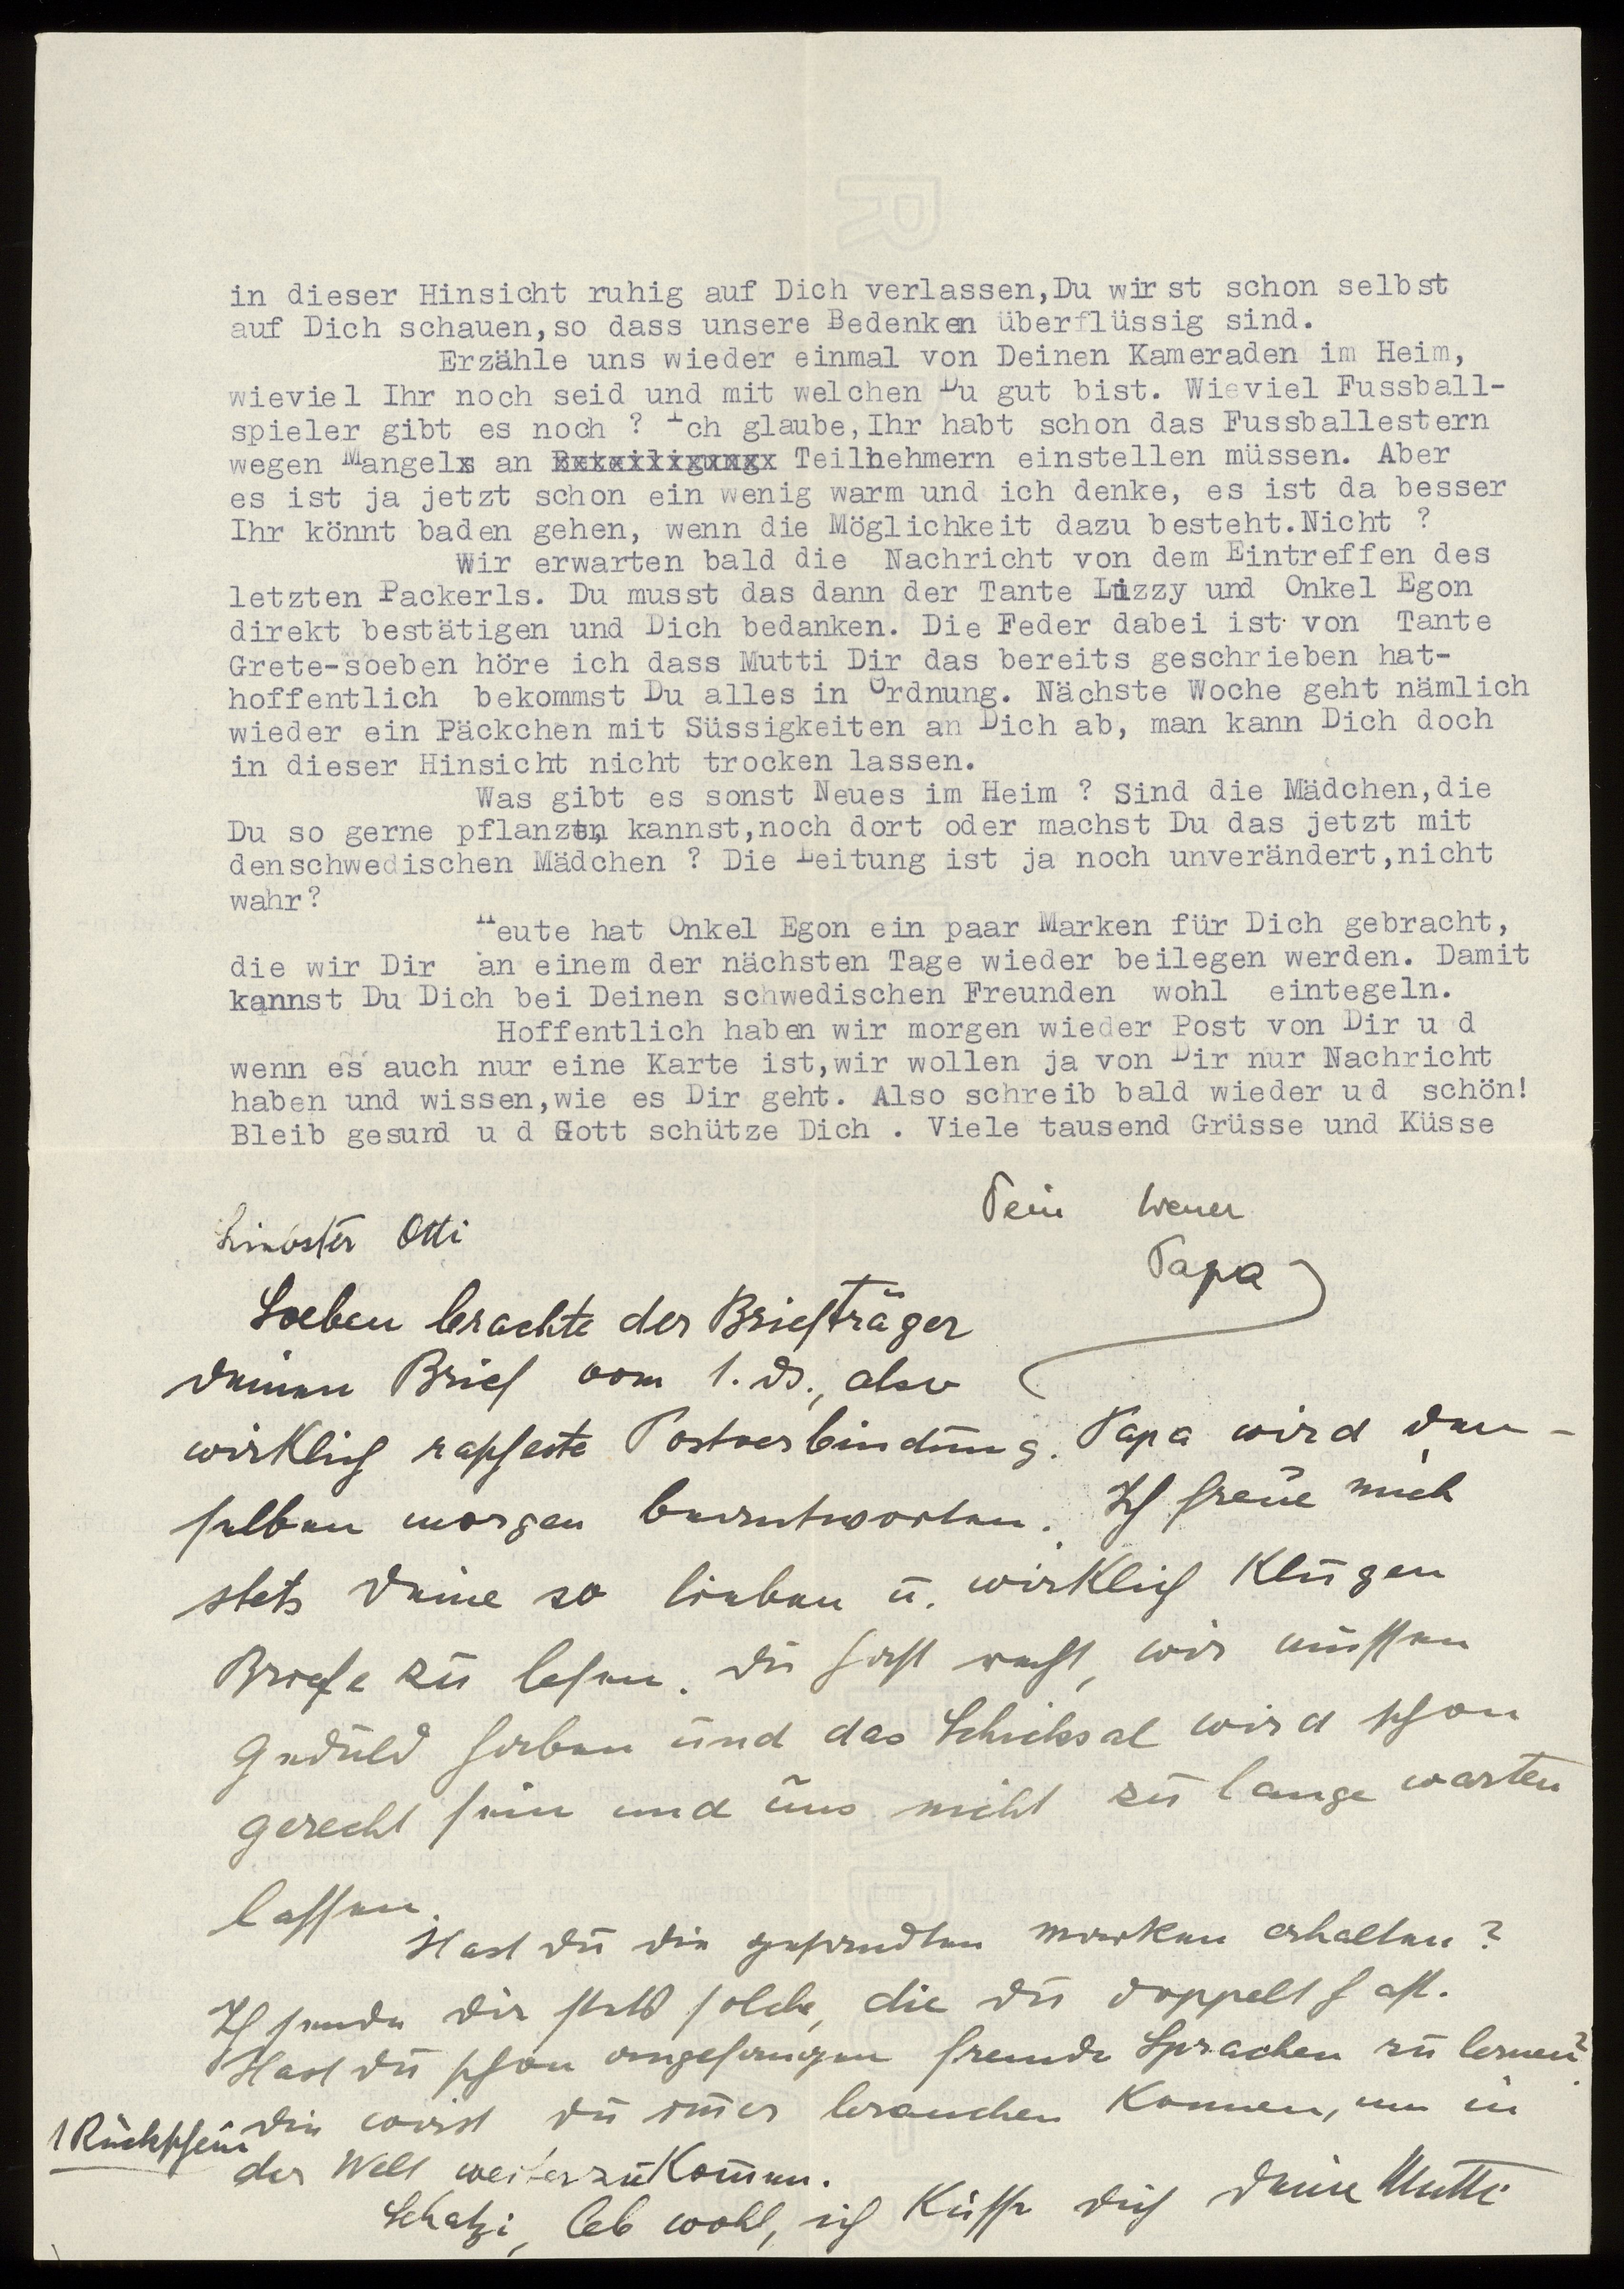 in dieser Hinsicht ruhig auf Dich verlassen,Du wirst schon selbst
auf Dich schauen,so dass unsere Bedenken überflüssig sind.
Erzähle uns wieder einmal von Deinen Kameraden im Heim,
wieviel Ihr noch seid und mit welchen Du gut bist. Wieviel Fussball-
spieler gibt es noch ? Ich glaube,Ihr habt schon das Fussballestern
wegen Mangels an Teilnehmern einstellen müssen. Aber
es ist ja jetzt schon ein wenig warm und ich denke, es ist da besser
Ihr könnt baden gehen, wenn die Möglichkeit dazu besteht.Nicht ?
Wir erwarten bald die Nachricht von dem Eintreffen des
letzten Packerls. Du musst das dann der Tante Lizzy und Onkel Egon
direkt bestätigen und Dich bedanken. Die Feder dabei ist von Tante
Grete-soeben höre ich dass Mutti Dir das bereits geschrieben hat-
hoffentlich bekommst Du alles in Ordnung. Nächste Woche geht nämlich
wieder ein Päckchen mit Süssigkeiten an Dich ab, man kann Dich doch
in dieser Hinsicht nicht trocken lassen.
Was gibt es sonst Neues im Heim ? Sind die Mädchen,die
Du so gerne pflanzen, kannst,noch dort oder machst Du das jetzt mit
denschwedischen Mädchen ? Die Leitung ist ja noch unverändert,nicht
wahr?
Heute hat Onkel Egon ein paar Marken für Dich gebracht,
die wir Dir an einem der nächsten Tage wieder beilegen werden. Damit
kannst Du Dich bei Deinen schwedischen Freunden wohl eintegeln.
Hoffentlich haben wir morgen wieder Post von Dir u d
wenn es auch nur eine Karte ist,wir wollen ja von Dir nur Nachricht
haben und wissen,wie es Dir geht. Also schreib bald wieder ud schön!
Bleib gesund u d Gott schütze Dich . Viele tausend Grüsse und Küsse
Dein treuer
Papa
Liebster Otti
Soeben brachte der Briefträger
Deinen Brief vom 1. ds., also
wirklich rascheste Postverbindung. Papa wird den-
selben morgen beantworten. Ich freue mich
stets Deine so lieben u. wirklich klugen
Briefe zu lesen. Du hast recht, wir müssen
Geduld haben und das Schicksal wird schon
gerecht sein und uns nicht zu lange warten
lassen.
Hast Du die gesandten Marken erhalten?
Ich sende Dir stets solche, die Du doppelt hast.
Hast Du schon angefangen fremde Sprachen zu lernen?
Die wirst Du immer brauchen können, um in
der Welt weiterzukommen.
1 Rückschein
Schatzi, leb wohl, ich küsse Dich Deine Mutti